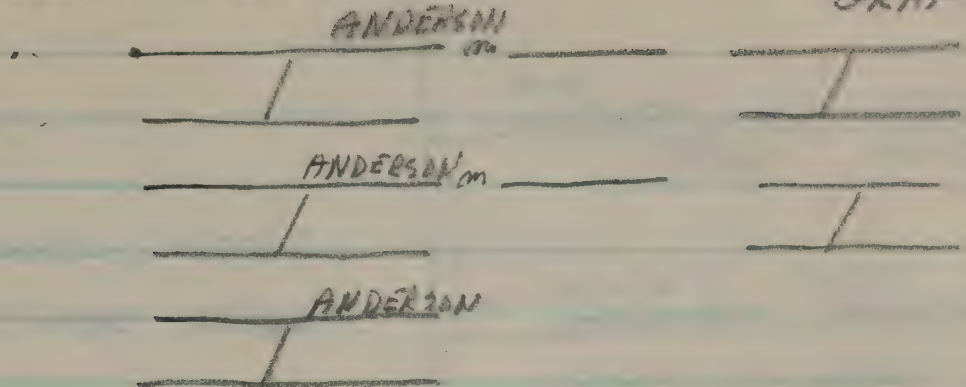 ANDERSON
m
ANDERSON m
ANDERSON